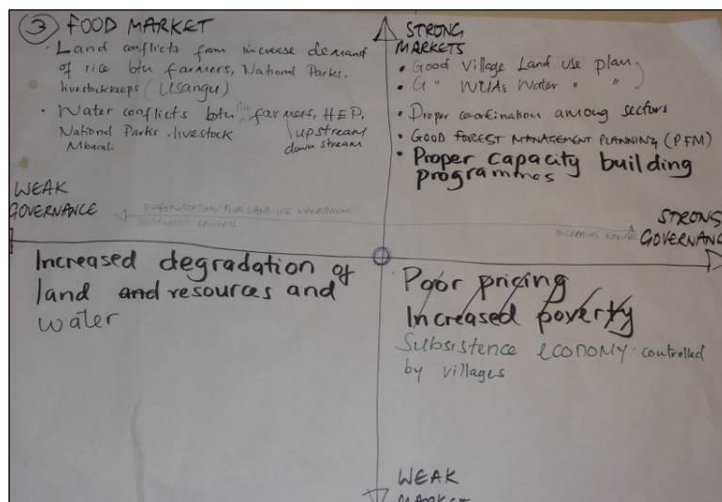 ③ FOOD MARKET
• Land conflicts from increase demand
of rice btn farmers, National Parks.
livestock keeps (Usangu)
• Water conflicts btn farmers, HEP,
National Parks, livestock
Mbarali
upstream
down stream
STRONG
MARKETS
• Good Village Land use plan
• G " WUAs Water " "
• Proper coordination among sectors
• GOOD FOREST MANAGEMENT PLANNING (PFM)
• Proper capacity building
programmes
WEAK
GOVERNANCE
LAND USE MANAGEMENT
STRONG
GOVERNANC
Increased degradation of
land and resources and
water
Poor pricing
Increased poverty
Subsistence economy controlled
by villages
WEAK
MARKET